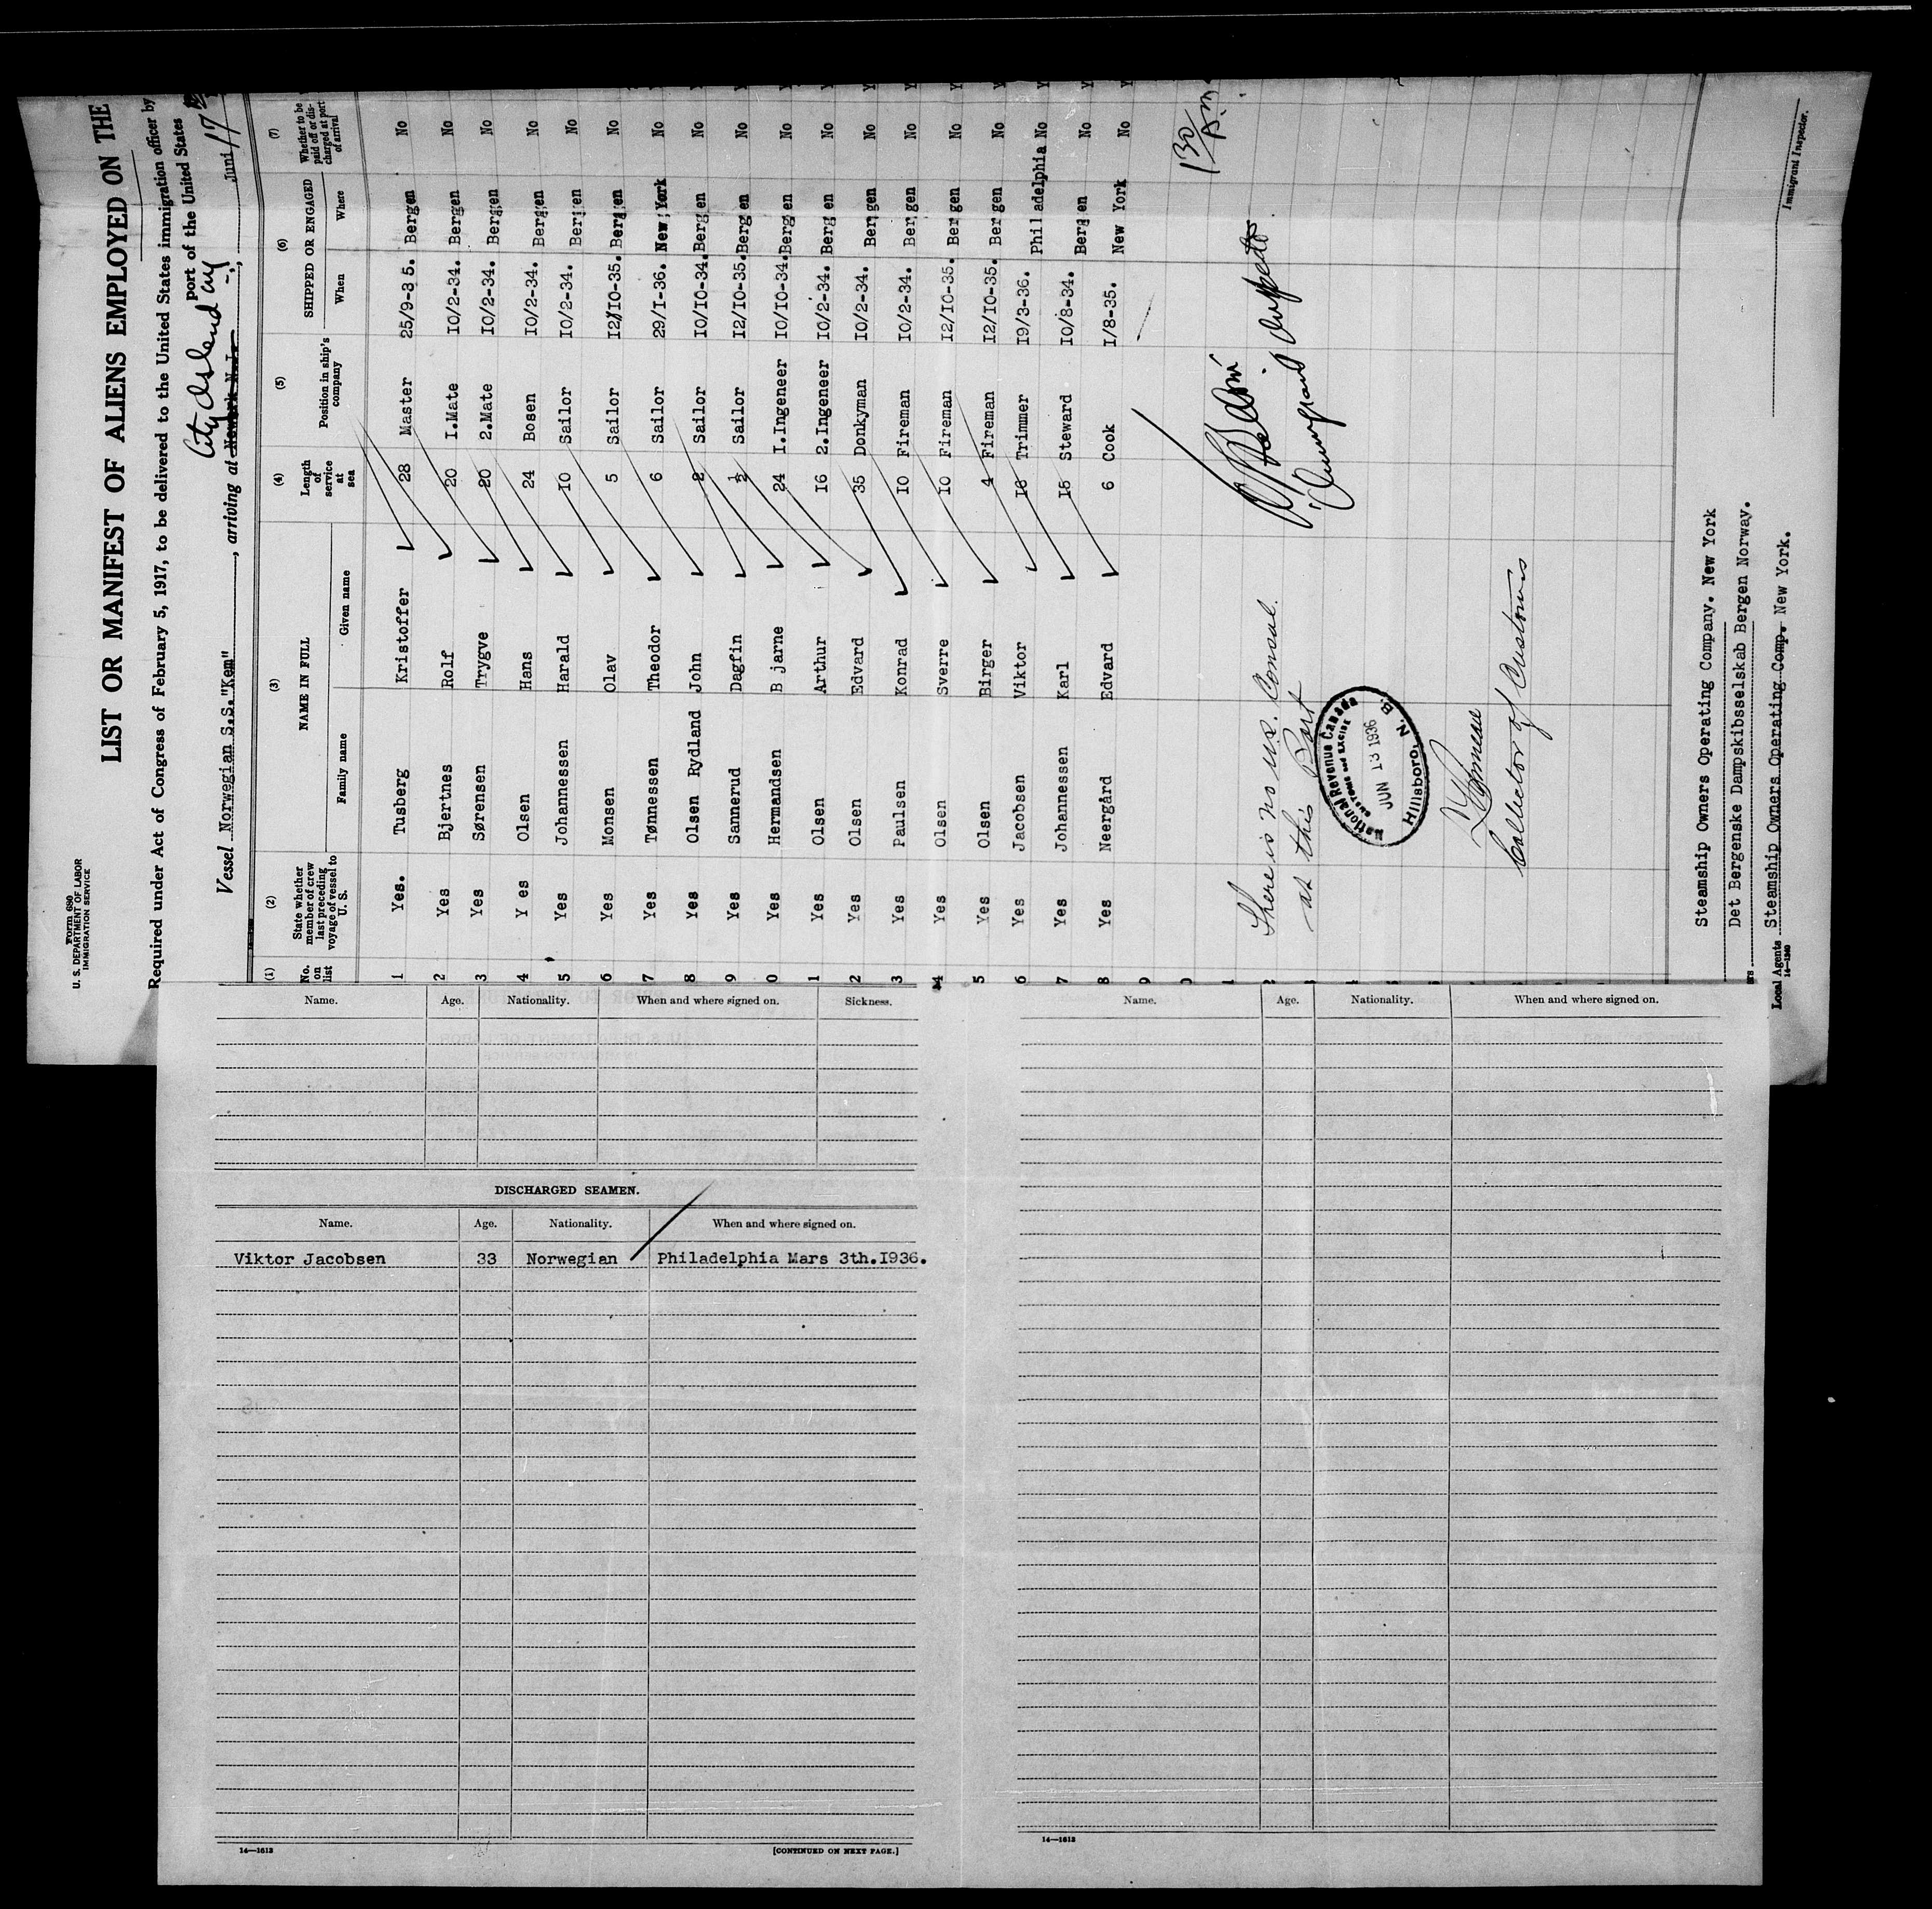 Form 680
U. S. DEPARTMENT OF LABOR
IMMIGRATION SERVICE
LIST OR MANIFEST OF ALIENS EMPLOYED ON THE
Required under Act of Congress of February 5, 1917, to be delivered to the United States immigration officer by
port of the United States
City Island NY
Vessel Norwegian S.S."Kem", arriving at Newark N.J. Juni 17
(1) (2) (3) (4) (5) (6) (7)
No. on list
State whether member of crew last preceding voyage of vessel to U. S.
NAME IN FULL
Family name Given name
Length of service at sea
Position in ship's company
SHIPPED OR ENGAGED
When Where
Whether to be paid off or discharged at port of arrival
1 Yes. Tusberg Kristoffer 28 Master 25/9-35. Bergen No
2 Yes Bjertnes Rolf 20 I.Mate IO/2-34. Bergen No
3 Yes Sørensen Trygve 20 2.Mate IO/2-34. Bergen No
4 Y es Olsen Hans 24 Bosen IO/2-34. Bergen No
5 Yes Johannessen Harald IO Sailor IO/2-34. Bergen No
6 Yes Monsen Olav 5 Sailor I2/IO-35. Bergen No
7 Yes Tønnessen Theodor 6 Sailor 29/I-36. New York No
8 Yes Olsen Rydland John 2 Sailor IO/IO-34. Bergen No
9 Yes Sannerud Dagfin ½ Sailor I2/IO-35. Bergen No
0 Yes Hermandsen B jarne 24 I.Ingeneer IO/IO-34. Bergen No
1 Yes Olsen Arthur I6 2.Ingeneer IO/2-34. Bergen No
2 Yes Olsen Edvard 35 Donkyman IO/2-34. Bergen No
3 Yes Paulsen Konrad IO Fireman IO/2-34. Bergen No
4 Yes Olsen Sverre IO Fireman I2/IO-35. Bergen No
5 Yes Olsen Birger 4 Fireman I2/IO-35. Bergen No
6 Yes Jacobsen Viktor I6 Trimmer I9/3-36. Philadelphia No
7 Yes Johannessen Karl I5 Steward IO/8-34. Bergen No
8 Yes Neergård Edvard 6 Cook I/8-35. New York No
9
0
130 AM
Immigrant Inspector
There is no U.S. Consul
at this Port
National Revenue Canada
CUSTOMS and EXCISE
JUN 13 1936
Hillsboro, N. B.
Collector of Customs
Steamship Owners Operating Company. New York
Det Bergenske Dampskibsselskab Bergen Norway.
Local Agents Steamship Owners Operating Comp. New York.
14—1240
Immigrant Inspector.
Name. Age. Nationality. When and where signed on. Sickness.
DISCHARGED SEAMEN.
Name. Age. Nationality. When and where signed on.
Viktor Jacobsen 33 Norwegian Philadelphia Mars 3th.I936.
14—1613
[CONTINUED ON NEXT PAGE.]
Name. Age. Nationality. When and where signed on.
14—1613